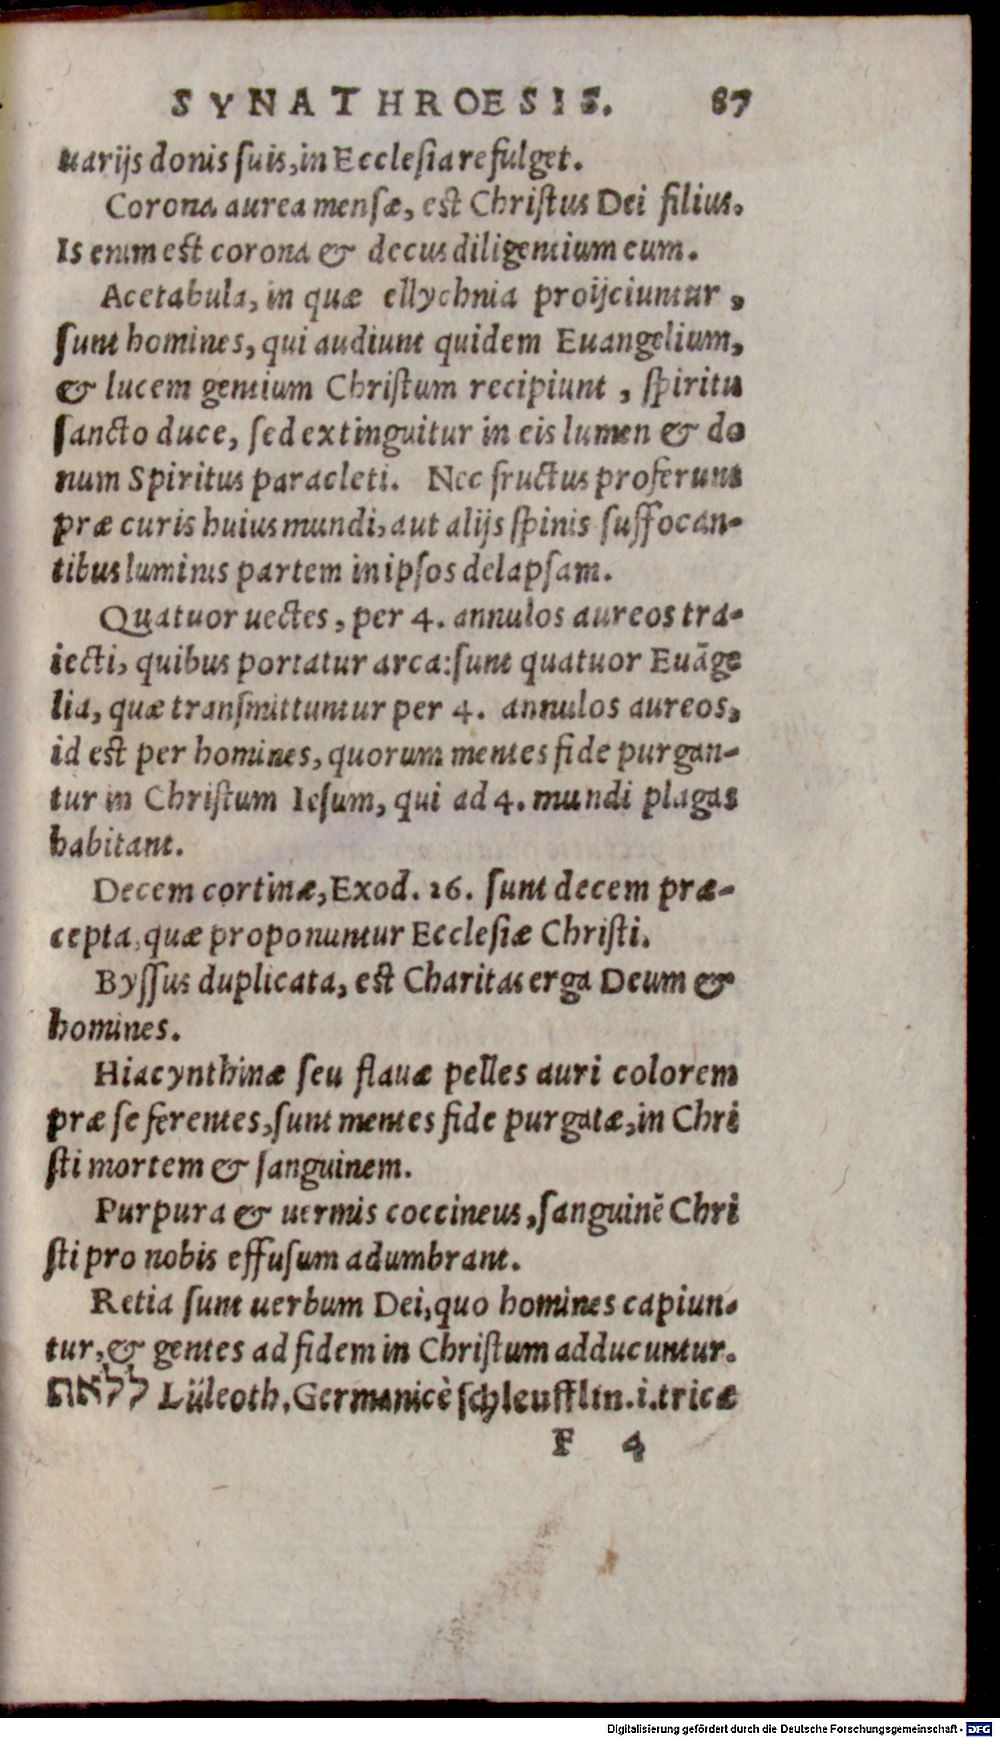 SYNATHROESIS. 87
uarijs donis suis, in Ecclesia refulget.
Corona aurea mensæ, est Christus Dei filius.
Is enim est corona & decus diligentium eum.
Acetabula, in quæ ellychnia proijciuntur,
sunt homines, qui audiunt quidem Euangelium,
& lucem gentium Christum recipiunt, spiritu
sancto duce, sed extinguitur in eis lumen & do
num Spiritus paracleti. Nec fructus proferunt
præ curis huius mundi, aut alijs spinis suffocan-
tibus luminis partem in ipsos delapsam.
Quatuor uectes, per 4. annulos aureos tra-
iecti, quibus portatur arca: sunt quatuor Euãge
lia, quæ transmittuntur per 4. annulos aureos,
id est per homines, quorum mentes fide purgan-
tur in Christum Iesum, qui ad 4. mundi plagas
habitant.
Decem cortinæ, Exod. 26. sunt decem præ-
cepta, quæ proponuntur Ecclesiæ Christi.
Byssus duplicata, est Charitas erga Deum &
homines.
Hiacynthinæ seu flauæ pelles auri colorem
præ se ferentes, sunt mentes fide purgatæ, in Chri
sti mortem & sanguinem.
Purpura & uermis coccineus, sanguinẽ Chri
sti pro nobis effusum adumbrant.
Retia sunt uerbum Dei, quo homines capiun-
tur, & gentes ad fidem in Christum adducuntur.
ללאת Lüleoth, Germanicè schleufflin. i. tricæ
F 4
Digitalisierung gefördert durch die Deutsche Forschungsgemeinschaft - DFG